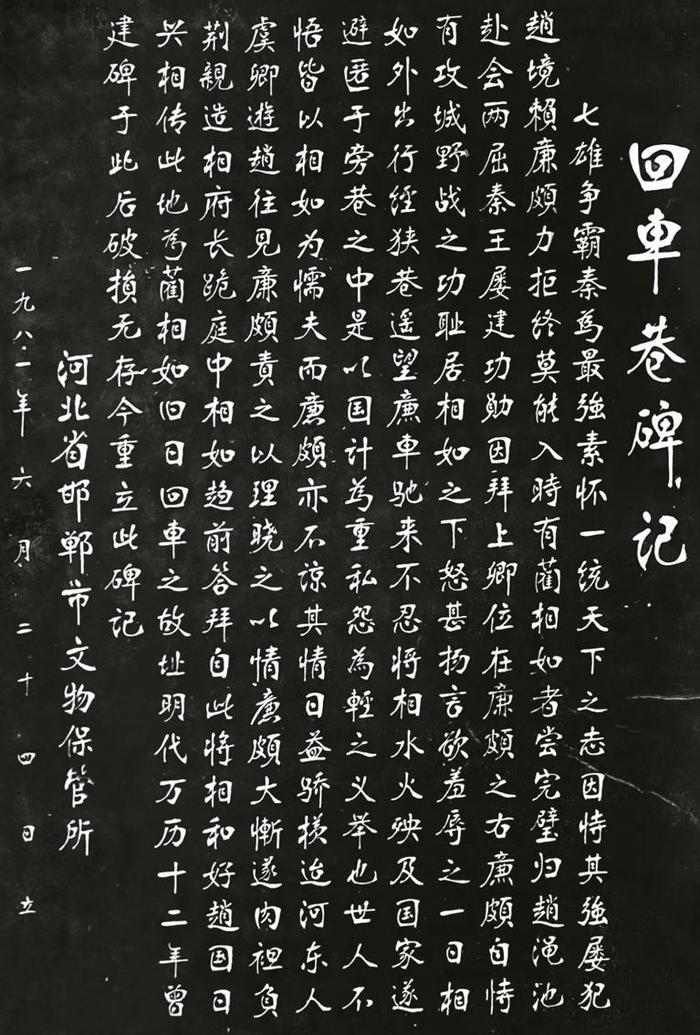 回車巷碑记
七雄争霸秦為最強素怀一统天下之志因恃其強屡犯
趙境賴廉頗力拒终莫能入時有藺相如者尝完璧归趙渑池
赴会两屈秦王屡建功勋因拜上卿位在廉頗之右廉頗自恃
有攻城野战之功耻居相如之下怒甚扬言欲羞辱之一日相
如外出行经狭巷遥望廉車驰来不忍将相水火殃及国家遂
避匿于旁巷之中是以国计為重私怨為輕之义举也世人不
悟皆以相如为懦夫而廉頗亦不谅其情日益骄横迨河东人
虞卿遊趙往见廉頗责之以理晓之以情廉頗大慚遂肉袒负
荆親造相府长跪庭中相如趋前答拜自此将相和好趙国日
兴相传此地為藺相如旧日回車之故址明代万历十二年曾
建碑于此后破损无存今重立此碑记
河北省邯郸市文物保管所
一九八一年六月二十四日立